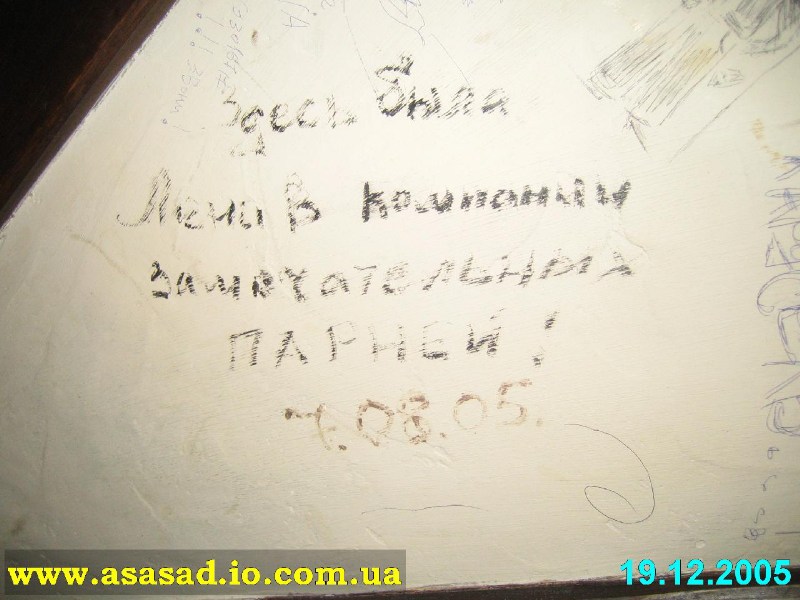 Здесь была
Лена в компании
замечательных
ПАРНЕЙ!
7.08.05.
www.asasad.io.com.ua
19.12.2005